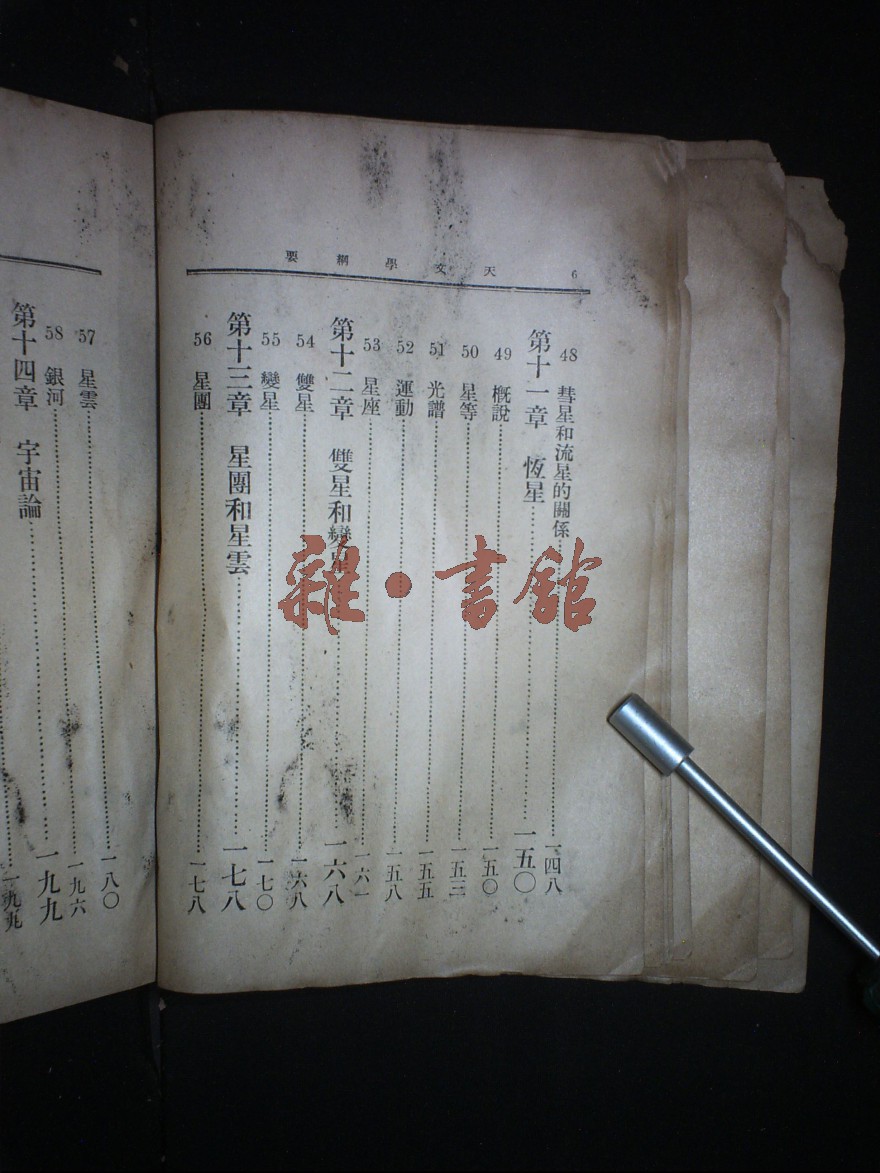 天文學綱要 6
48 彗星和流星的關係 一四八
第十一章 恆星 一五〇
49 概說 一五〇
50 星等 一五三
51 光譜 一五五
52 運動 一五八
53 星座 一六一
第十二章 雙星和變星 一六八
54 雙星 一六八
55 變星 一七〇
第十三章 星團和星雲 一七八
56 星團 一七八
57 星雲 一八〇
58 銀河 一九六
第十四章 宇宙論 一九九
一九九
雜·書館